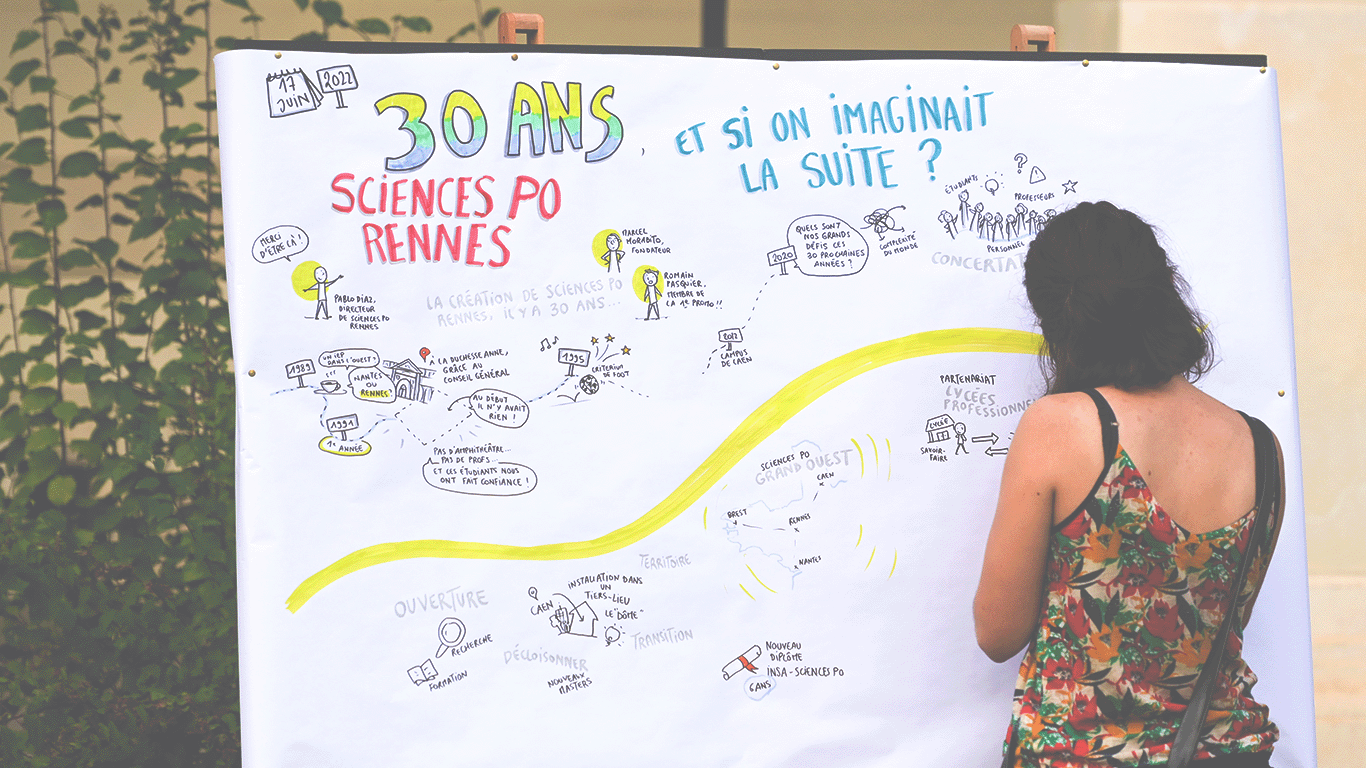 17
JUIN
2022
30 ANS,
ET SI ON IMAGINAIT
LA SUITE ?
SCIENCES PO
RENNES
MERCI
D'ÊTRE LÀ !
PABLO DIAZ,
DIRECTEUR
DE SCIENCES PO
RENNES
LA CRÉATION DE SCIENCES PO
RENNES, IL Y A 30 ANS...
MARCEL
MORABITO,
FONDATEUR
ROMAIN
PASQUIER,
MEMBRE DE
LA 1e PROMO !!
1989
UN IEP
DANS L'OUEST ?
NANTES
OU
RENNES ?
LA DUCHESSE ANNE,
GRÂCE AU
CONSEIL GÉNÉRAL
1991
1e ANNÉE
AU DÉBUT
IL N'Y AVAIT
RIEN !
PAS D'AMPHITHÉÂTRE...
PAS DE PROFS...
ET CES ÉTUDIANTS NOUS
ONT FAIT CONFIANCE !
1995
CRITERIUM
DE FOOT
CAMPUS
DE CAEN
2020
QUELS SONT
NOS GRANDS
DÉFIS CES
30 PROCHAINES
ANNÉES ?
COMPLEXITÉ
DU MONDE
ÉTUDIANTS
?
!
PROFESSEURS
PERSONNEL
CONCERTAT
PARTENARIAT
LYCÉES
PROFESSIONNE
LYCÉE
SAVOIR-
FAIRE
SCIENCES PO
GRAND OUEST
CAEN
BREST
RENNES
NANTES
TERRITOIRE
OUVERTURE
RECHERCHE
FORMATION
DÉCLOISONNER
NOUVEAUX
MASTERS
CAEN
INSTALLATION DANS
UN
TIERS-LIEU
LE "DÔME"
TRANSITION
NOUVEAU
DIPLÔME
INSA - SCIENCES PO
6 ANS